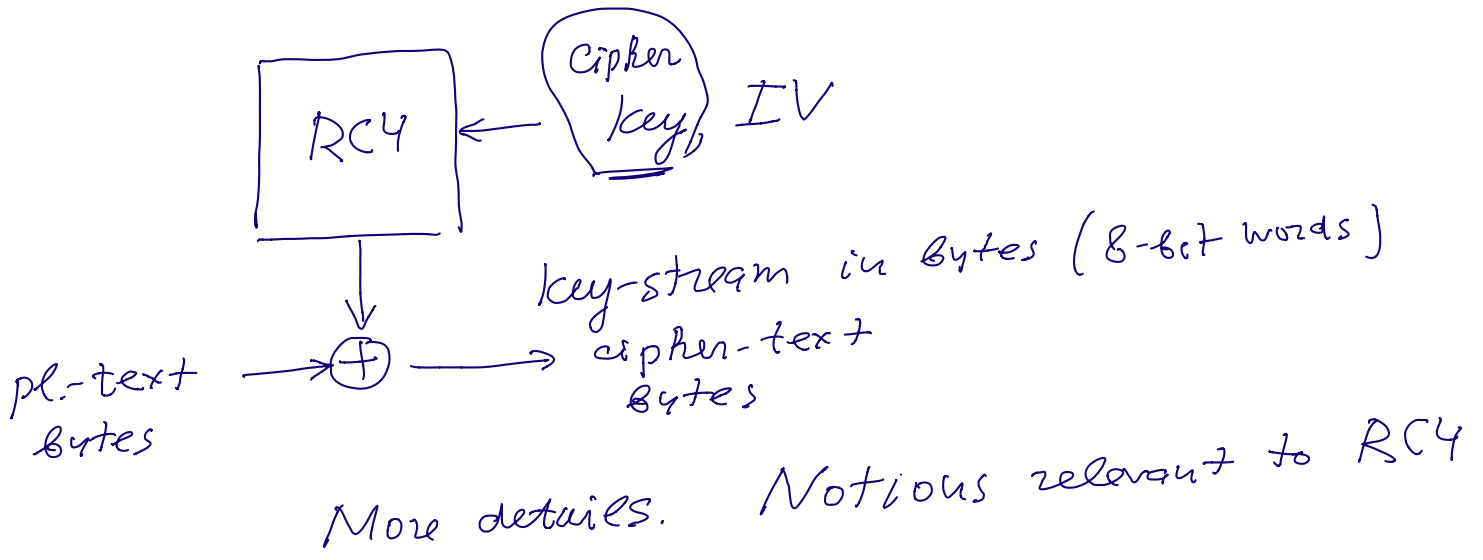 cipher
key, IV
RC4
key-stream in bytes (8-bit words)
pl.-text
bytes
+
cipher-text
bytes
More details. Notions relevant to RC4